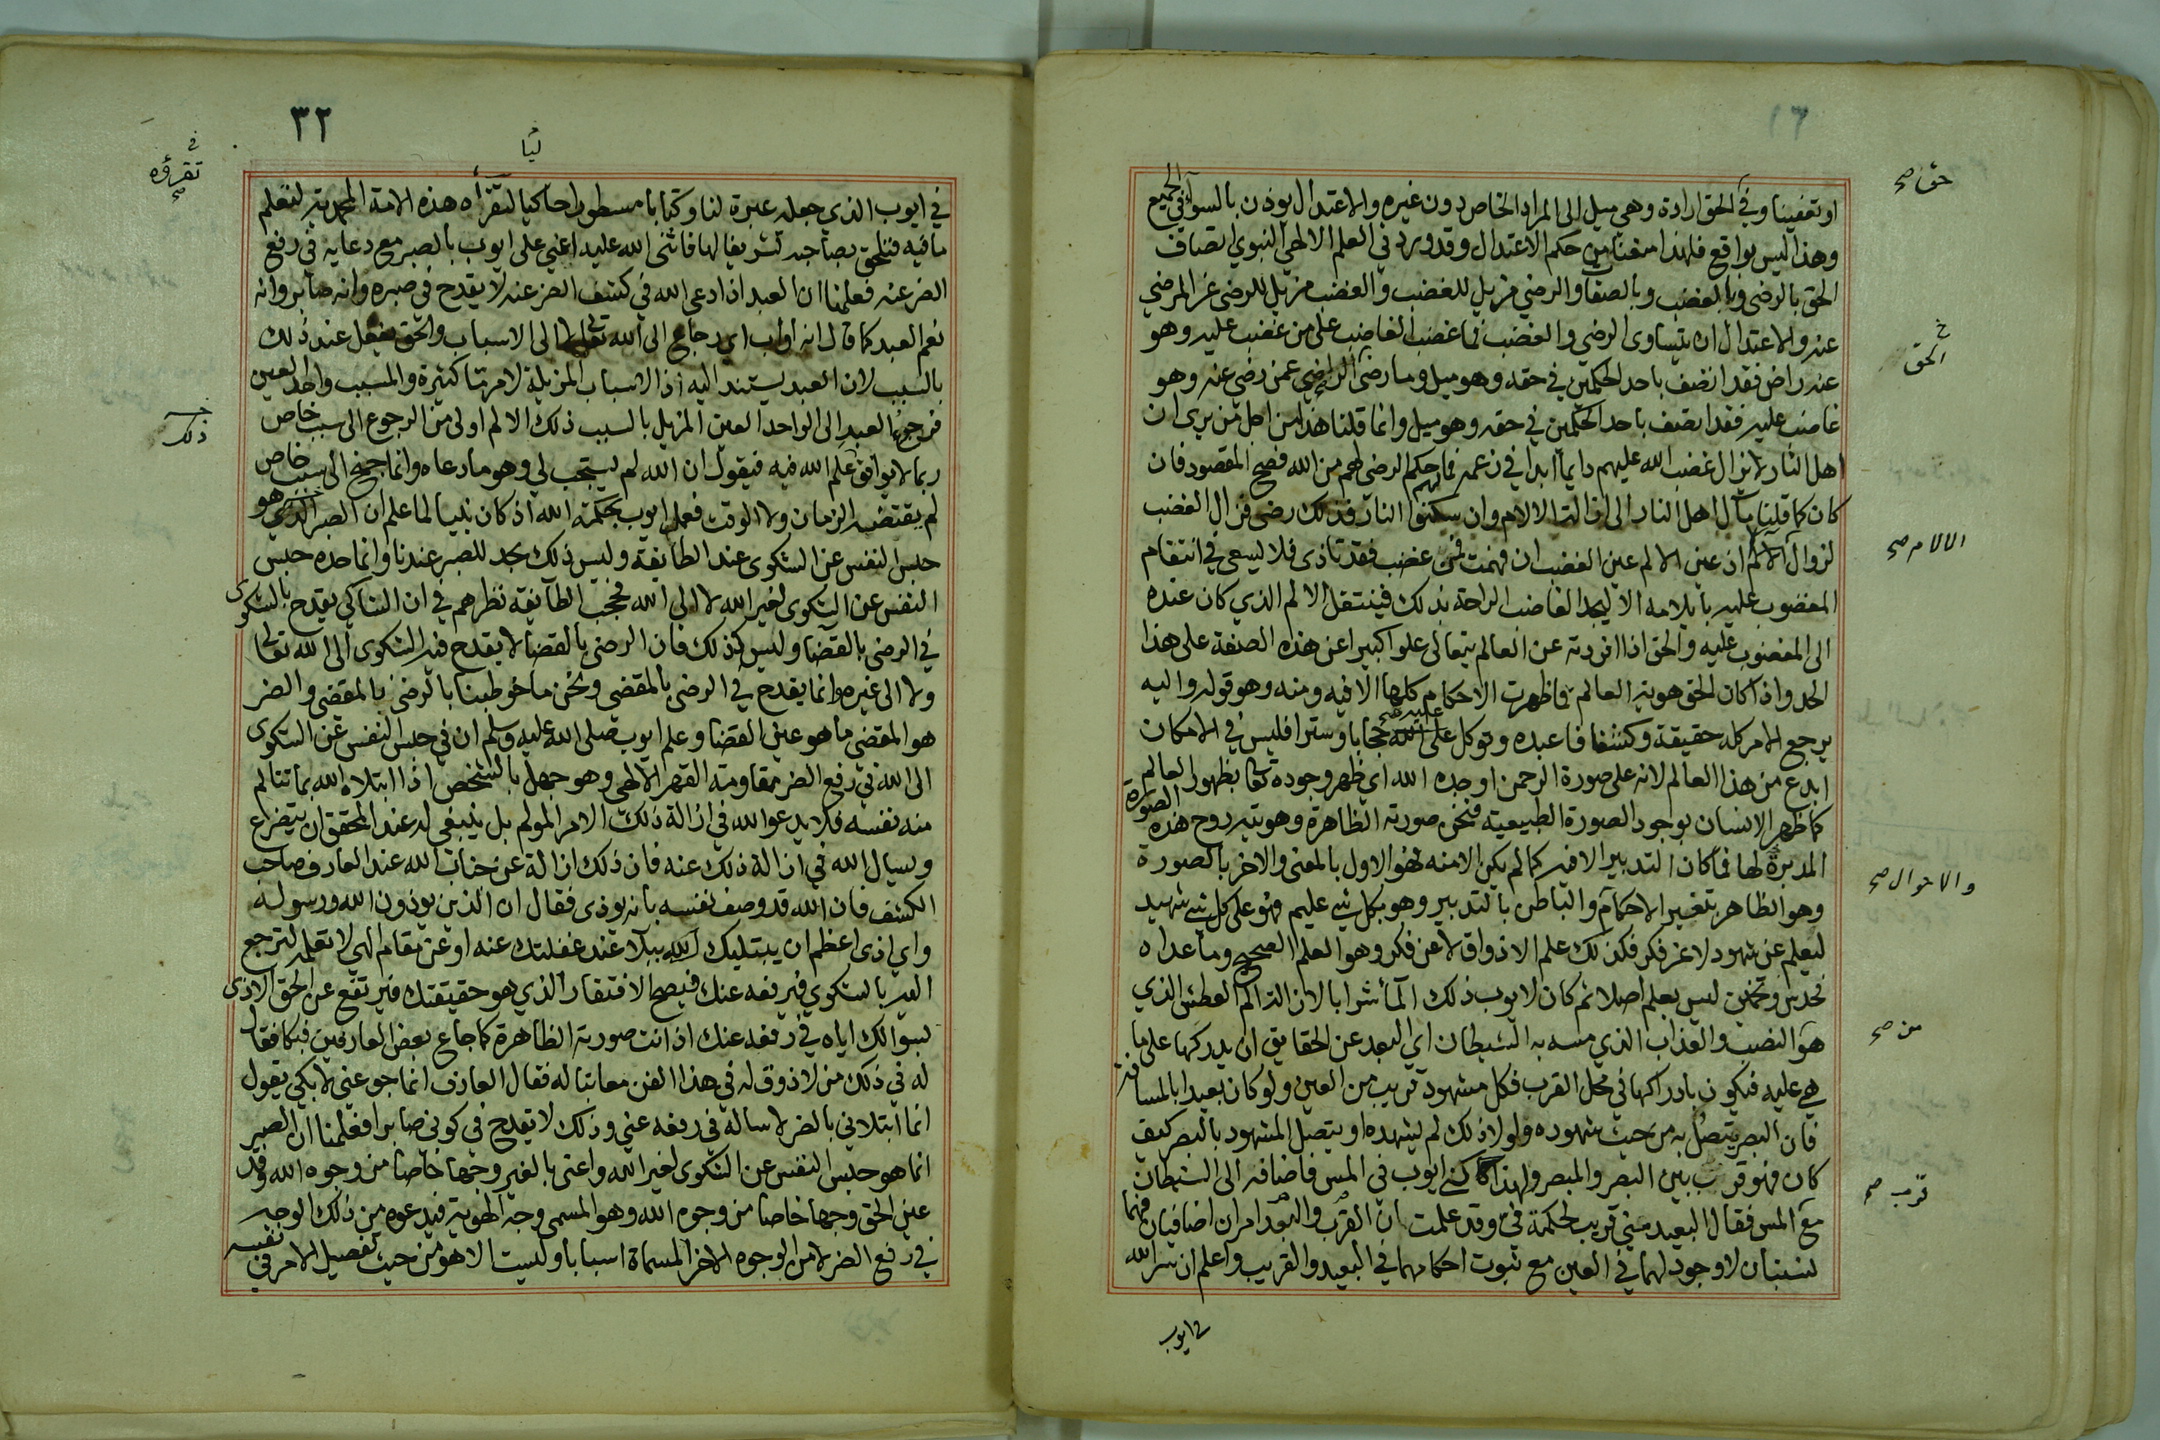 حق صح
او تعفينا وفي الحق ارادة وهي ميل الى المراد الخاص دون غيره والاعتدال يوذن بالسوآء في الجميع
وهذا ليس بواقع فلهذا منعنا من حكم الاعتدال وقد ورد في العلم الالهي النبوي اتصاف
الحق بالرضى وبالغضب وبالصفا والرضى مزيل للغضب والغضب مزيل للرضى عن المرضي
عنه والاعتدال ان يتساوى الرضى والغضب فما غضب الغاضب على من غضب عليه وهو
خ
الحق
عنه راض فقد اتصف باحد الحكمين في حقه وهو ميل وما رضى الراضي عمن رضى عنه وهو
غاضب عليه فقد اتصف باحد الحكمين في حقه وهو ميل وانما قلنا هذا من اجل من يرى ان
اهل النار لا يزال غضب الله عليهم دايماً ابدا في زعمه فما لهم حكم الرضى من الله فصح المقصود فان
كان كما قلنا مآل اهل النار الى ازالة الالام وان سكنوا النار فذلك رضى فزال الغضب
الالام صح
لزوال الآلام اذ عين الالم عين الغضب ان فهمت فمن غضب فقد تاذى فلا يسعى في انتقام
المغضوب عليه بايلامه الا ليجد الغاضب الراحة بذلك فينتقل الالم الذي كان عنده
الى المغضوب عليه والحق اذا افردته عن العالم يتعالى علوا كبيرا عن هذه الصفة على هذا
الحد واذا كان الحق هوية العالم فما ظهرت الاحكام كلها الا فيه ومنه وهو قوله واليه
يرجع الامر كله حقيقة وكشفا فاعبده وتوكل عليه صح حجابا وسترا فليس في الامكان
ابدع من هذا العالم لانه على صورة الرحمن اوجده الله اي ظهر وجوده تعالى بظهور العالم
كما ظهر الانسان بوجود الصورة الطبيعية فنحن صورته الظاهرة وهويته روح هذه الصورة
المدبرة لها فما كان التدبير الا فيه كما لم يكن الا منه فهو الاول بالمعنى والاخر بالصورة
والاحوال صح
وهو الظاهر بتغيير الاحكام والباطن بالتدبير وهو بكل شي عليم فهو على كل شي شهيد
ليعلم عن شهود لا عن فكر فكذلك علم الاذواق لا عن فكر وهو العلم الصحيح وما عداه
فحدس وتخمين ليس بعلم اصلا ثم كان لايوب ذلك المآ شرابا لازالة الم العطش الذي
من صح
هو النصب والعذاب الذي مسه به الشيطان اي البعد عن الحقايق ان يدركها على ما
هي عليه فيكون بادراكها في محل القرب فكل مشهود قريب من العين ولو كان بعيدا بالمسافة
فان البصر يتصل به من حيث شهوده ولولا ذلك لم يشهده او يتصل المشهود بالبصر كيف
كان فهو قرب بين البصر والمبصر ولهذا كنى ايوب في المس فاضافه الى الشيطان
قرب صح
مع المس فقال البعيد مني قريب لحكمة في وقد علمت ان القرب والبعد امران اضافيان فهما
نسبتان لا وجود لهما في العين مع ثبوت احكامهما في البعيد والقريب واعلم ان سر الله
في ايوب
٣٢
في ايوب الذي جعله عبرة لنا وكتابا مسطورا حاكيا لتقرأه هذه الامة المحمدية لتعلم
تقرؤه
صح
ما فيه فتلحق بصاحبه تشريفا لها فاثنى الله عليه اعني على ايوب بالصبر مع دعايه في رفع
الضر عنه فعلمنا ان العبد اذا دعى الله في كشف الضر عنه لا يقدح في صبره وانه صابر وانه
نعم العبد كما قال انه اواب اي رجاع الى الله تعالى لا الى الاسباب والحق يفعل عند ذلك
بالسبب لان العبد يستند اليه اذ الاسباب المزيلة لامر ما كثيرة والمسبب واحد العين
فرجوع العبد الى الواحد العين المزيل بالسبب ذلك الالم اولى من الرجوع الى سبب خاص
ذلك
ربما لا يوافق علم الله فيه فيقول ان الله لم يستجب لي وهو ما دعاه وانما جنح الى سبب خاص
لم يقتضه الزمان ولا الوقت فعمل ايوب بحكمة الله اذ كان نبيا لما علم ان الصبر الذي هو
حبس النفس عن الشكوى عند الطايفة وليس ذلك بحد للصبر عندنا وانما حده حبس
النفس عن الشكوى لغير الله لا الى الله فحجب الطآيفة نظرهم في ان الشاكي يقدح بالشكوى
في الرضى بالقضآ وليس كذلك فان الرضى بالقضا لا يقدح فيه الشكوى الى الله تعالى
ولا الى غيره وانما يقدح في الرضى بالمقضي ونحن ما خوطبنا بالرضى بالمقضي والضر
هو المقضي ما هو عين القضا وعلم ايوب صلى الله عليه وسلم ان في حبس النفس عن الشكوى
الى الله في رفع الضر مقاومة القهر الالهي وهو جهل بالشخص اذا ابتلاه الله بما تتالم
منه نفسه فلا يدعوا الله في ازالة ذلك الامر المولم بل ينبغي له عند المحقق ان يتضرع
ويسال الله في ازالة ذلك عنه فان ذلك ازالة عن جناب الله عند العارف صاحب
الكشف فان الله قد وصف نفسه بانه يوذى فقال ان الذين يوذون الله ورسوله
واي اذى اعظم ان يبتليك الله ببلآ عند غفلتك عنه او عن مقام الهي لا تعلمه لترجع
اليه بالشكوى فيرفعه عنك فيصح الافتقار الذي هو حقيقتك فيرتفع عن الحق الاذى
بسوالك اياه في رفعه عنك اذ انت صورته الظاهرة كما جاع بعض العارفين فبكا فقال
له في ذلك من لا ذوق له في هذا الفن معاتبا له فقال العارف انما جوعني لابكي يقول
انما ابتلاني بالضر لاساله في رفعه عني وذلك لا يقدح في كوني صابرا فعلمنا ان الصبر
انما هو حبس النفس عن الشكوى لغير الله واعنى بالغير وجها خاصا من وجوه الله وقد
عين الحق وجها خاصا من وجوه الله وهو المسمى وجه الهوية فيدعوه من ذلك الوجه
في رفع الضر لا من الوجوه الاخر المسماة اسبابا وليست الا هو من حيث تفصيل الامر في نفسه